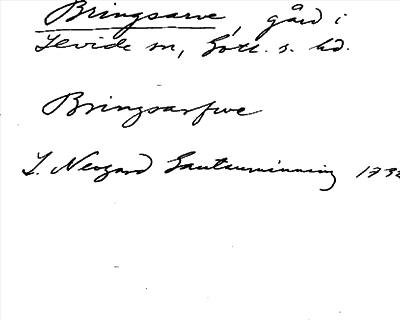 Bringsarve, gård i
Levide sn, Gotl. s. hd.
Bringsarfwe
L. Neogard Gautauminning 173